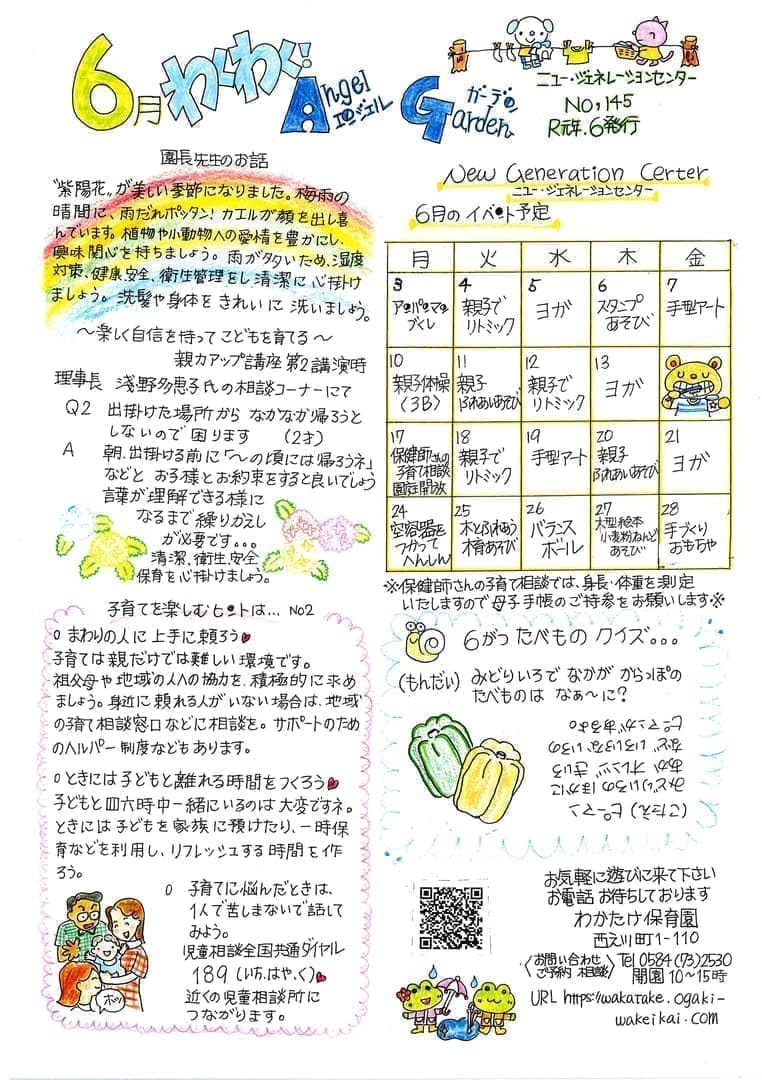 6月 わくわく! Angel エンジェル Garden ガーデン
ニュー・ジェネレーションセンター
No,145
R元年.6発行
園長先生のお話
"紫陽花"が美しい季節になりました。梅雨の
晴間に、雨だれポッタン! カエルが顔を出し喜
んでいます。植物や小動物への愛情を豊かにし、
興味関心を持ちましょう。雨が多いため、湿度
対策、健康、安全、衛生管理をし清潔に心掛け
ましょう。洗髪や身体をきれいに洗いましょう。
〜楽しく自信を持ってこどもを育てる〜
親力アップ講座 第2講演時
理事長 浅野多恵子氏の相談コーナーにて
Q2 出掛けた場所からなかなか帰ろうと
しないので困ります (2才)
A 朝、出掛ける前に「〜の頃には帰ろうネ」
などと お子様とお約束をすると良いでしょう
言葉が理解できる様に
なるまで繰りかえし
が必要です...
清潔、衛生、安全
保育を心掛けましょう。
子育てを楽しむヒントは... No2
o まわりの人に上手に頼ろう♥
子育ては親だけでは難しい環境です。
祖父母や地域の人への協力を、積極的に求め
ましょう。身近に頼れる人がいない場合は、地域
の子育て相談窓口などに相談を。サポートのため
のヘルパー制度などもあります。
o ときには子どもと離れる時間をつくろう♥
子どもと四六時中一緒にいるのは大変ですネ。
ときには子どもを家族に預けたり、一時保
育などを利用し、リフレッシュする時間を作
ろう。
o 子育てに悩んだときは、
1人で苦しまないで話して
みよう。
児童相談全国共通ダイヤル
189 (いち.はや.く)♥
近くの児童相談所に
つながります。
ホッ
New Generation Certer
ニュー・ジェネレーションセンター
6月のイベント予定
月 火 水 木 金
3 4 5 6 7
ア・パ・マの づくし 親子で リトミック ヨガ スタンプ あそび 手型アート
10 11 12 13
親子体操 (3B) 親子 ふれあいあそび 親子で リトミック ヨガ
17 18 19 20 21
保健師さんの 子育て相談 園庭開放 親子で リトミック 手型アート 親子 ふれあいあそび ヨガ
24 25 26 27 28
空容器を つかって へんしん 木とふれあう 木育あそび バランス ボール 大型絵本 小麦粉ねんど あそび 手づくり おもちゃ
※保健師さんの子育て相談では、身長・体重を測定
いたしますので母子手帳のご持参をお願いします※
6がつ たべもの クイズ。。。
(もんだい) みどりいろで なかが からっぽの
たべものは なぁ〜に?
(こたえ) ピーマン
みどりいろのほかに
あか、オレンジ、きいろ
など、いろいろないろの
ピーマンがあるよ。
お気軽に遊びに来て下さい
お電話お待ちしております
わかたけ保育園
西之川町1-110
〈お問い合わせ ご予約 相談〉 Tel 0584(73)2530
開園10〜15時
URL https://wakatake.ogaki-
wakeikai.com